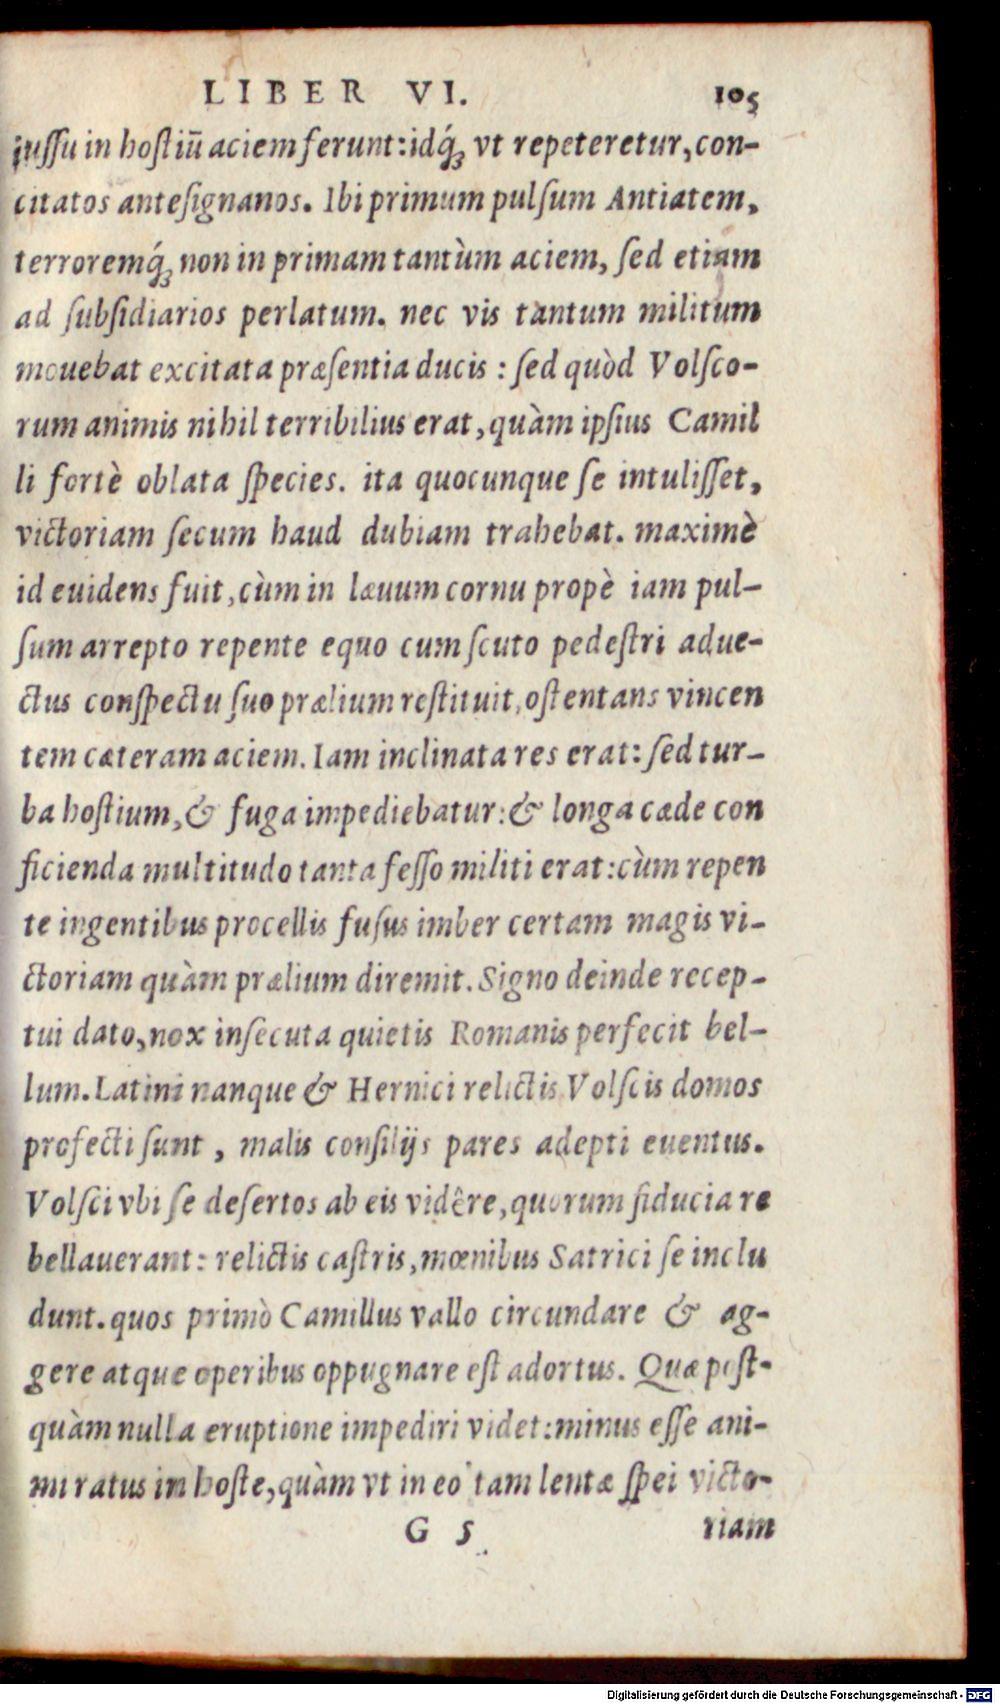 LIBER VI. 105
iuſſu in hoſtiū aciem ferunt: idq́ꝫ vt repeteretur, con-
citatos anteſignanos. Ibi primum pulſum Antiatem,
terroremq́ꝫ non in primam tantùm aciem, ſed etiam
ad ſubſidiarios perlatum. nec vis tantum militum
mouebat excitata præſentia ducis: ſed quòd Volſco-
rum animis nihil terribilius erat, quàm ipſius Camil
li fortè oblata ſpecies. ita quocunque ſe intuliſſet,
victoriam ſecum haud dubiam trahebat. maximè
id euidens fuit, cùm in læuum cornu propè iam pul-
ſum arrepto repente equo cum ſcuto pedeſtri adue-
ctus conſpectu ſuo prælium reſtituit, oſtentans vincen
tem cæteram aciem. Iam inclinata res erat: ſed tur-
ba hoſtium, & fuga impediebatur: & longa cæde con
ficienda multitudo tanta feſſo militi erat: cùm repen
te ingentibus procellis fuſus imber certam magis vi-
ctoriam quàm prælium diremit. Signo deinde recep-
tui dato, nox inſecuta quietis Romanis perfecit bel-
lum. Latini nanque & Hernici relictis Volſcis domos
profecti ſunt, malis conſilijs pares adepti euentus.
Volſci vbi ſe deſertos ab eis vidêre, quorum fiducia re
bellauerant: relictis caſtris, mœnibus Satrici ſe inclu
dunt. quos primò Camillus vallo circundare & ag-
gere atque operibus oppugnare eſt adortus. Quæ poſt-
quàm nulla eruptione impediri videt: minus eſſe ani-
mi ratus in hoſte, quàm vt in eo tam lentæ ſpei victo-
G 5 riam
Digitalisierung gefördert durch die Deutsche Forschungsgemeinschaft - DFG